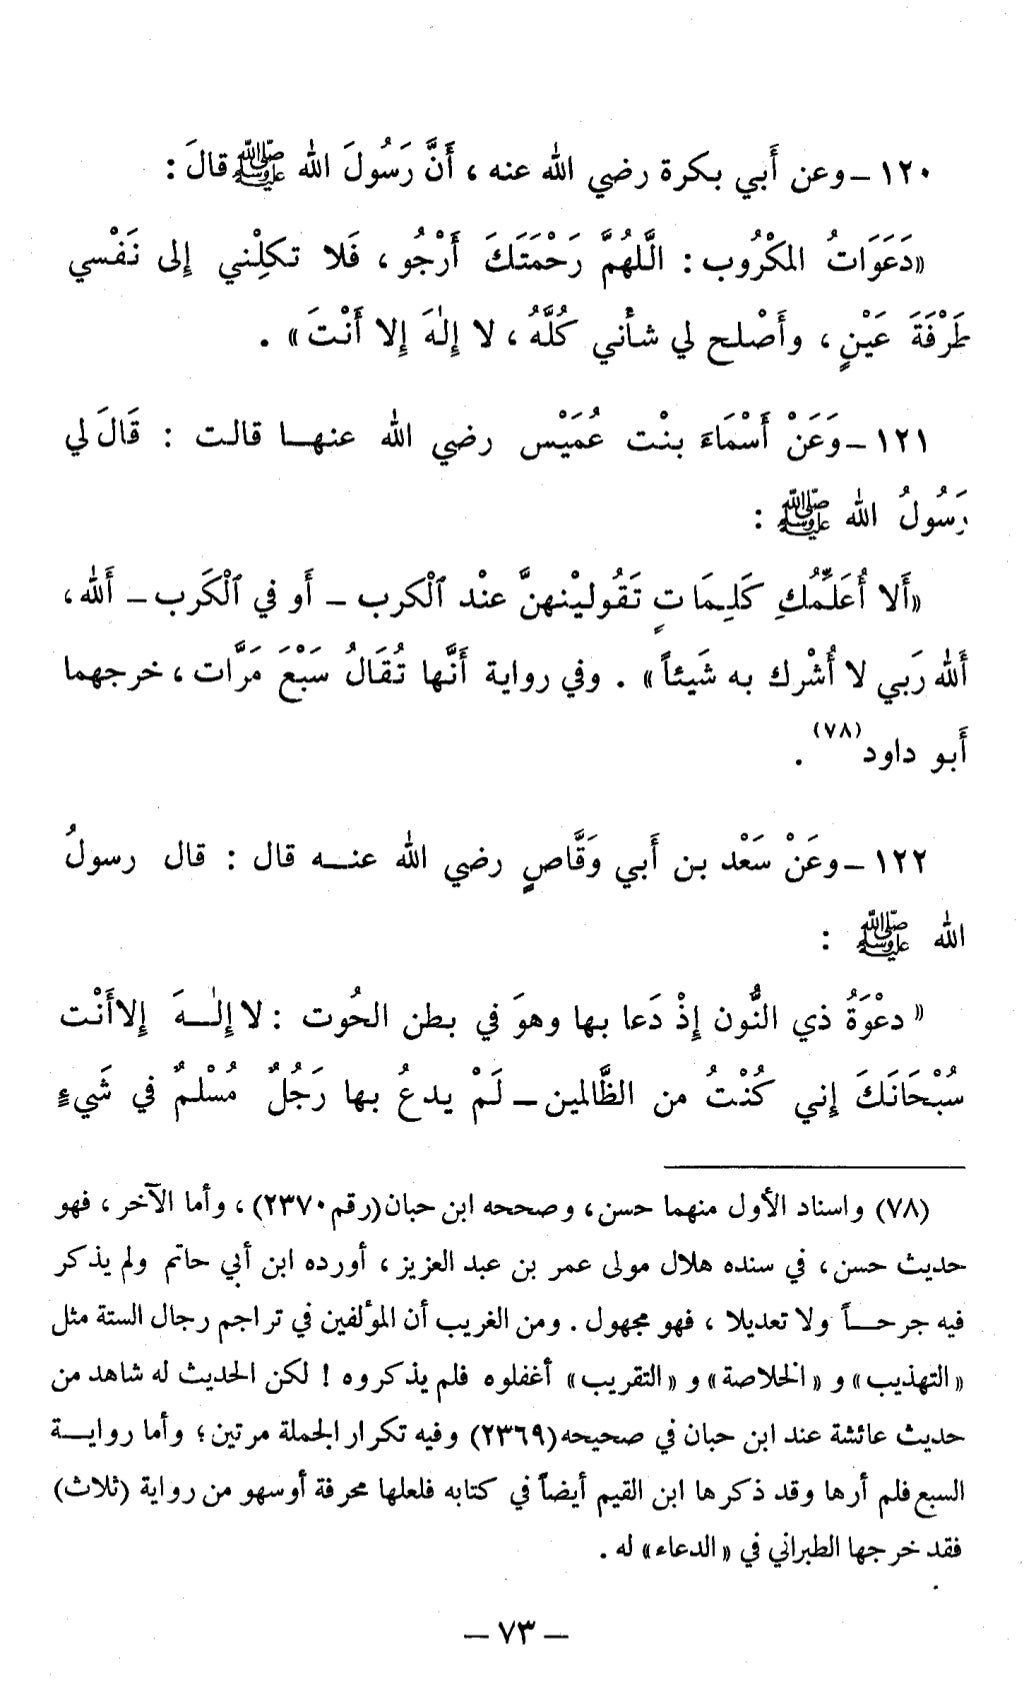 ١٢٠ ــ وعن أَبي بكرة رضي الله عنه ، أَنَّ رَسُولَ الله ﷺ قالَ :
« دَعَوَاتُ المكْرُوب : الَّلهُمَّ رَحْمَتَكَ أَرْجُو ، فَلا تكلِنْني إلى نَفْسي
طَرْفَةَ عَيْنٍ ، وأَصْلح لي شأني كُلَّهُ ، لا إِلٰهَ إلا أَنْتَ » .
١٢١ ــ وَعَنْ أَسْمَاءَ بنْت عُمَيْس رضي الله عنهــا قالت : قَالَ لي
رَسُولُ الله ﷺ :
« أَلا أُعَلِّمُكِ كَلِـمَاتٍ تَقُولينْهنَّ عنْد ٱلْكرب – أَو في ٱلْكَرب – أَلله ،
أَلله رَبي لا أُشْرك به شَيئاً » . وفي رواية أَنَّها تُقَالُ سَبْعَ مَرَّات ، خرجهما
أَبو داود (٧٨) .
١٢٢ ــ وعَنْ سَعْد بن أَبي وَقَّاصٍ رضي الله عنــه قال : قال رسولُ
الله ﷺ :
« دعْوَةُ ذي النُّون إذْ دَعا بها وهوَ في بطن الحُوت : لا إِلٰــهَ إلا أَنْت
سُبْحَانَكَ إني كُنْتُ من الظَّالمين ــ لَمْ يدعُ بها رَجُلٌ مُسْلمٌ في شَيءٍ
(٧٨) واسناد الأول منهما حسن ، وصححه ابن حبان (رقم ٢٣٧٠) ، وأما الآخر ، فهو
حديث حسن ، في سنده هلال مولى عمر بن عبد العزيز ، أورده ابن أبي حاتم ولم يذكر
فيه جرحــاً ولا تعديلا ، فهو مجهول . ومن الغريب أن المؤلفين في تراجم رجال الستة مثل
« التهذيب » و « الخلاصة » و « التقريب » أغفلوه فلم يذكروه ! لكن الحديث له شاهد من
حديث عائشة عند ابن حبان في صحيحه (٢٣٦٩) وفيه تكرار الجملة مرتين ؛ وأما روايــة
السبع فلم أرها وقد ذكرها ابن القيم أيضاً في كتابه فلعلها محرفة أو سهو من رواية (ثلاث)
فقد خرجها الطبراني في « الدعاء » له .
– ٧٣ –